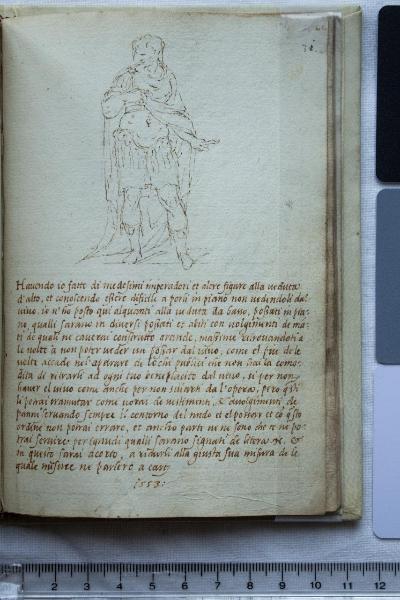 Havendo io fatto di medesimi imperadori et altre figure alla veduta
d'alto, et conoscendo essere dificile a porli in piano non vedendoli dal
vivo. io n'ho posto qui alquanti alla veduta da basso, postati in pia-
no, qualli sarano in diversi postati et abiti con volgimenti de ma-
ti de quali ne caverai construtto grande, massime ritrovandoti a
le volte a non poter veder un postar dal vivo, come el piu de le
volte accade nel operare in lochi publici che non s'ha la como-
dita di ritrarsi ad ogni suo beneplacito dal vivo, si per non
haver el vivo come anche per non sviarsi da l'opera, pero questi
li potrai tramutar come vorai de vestimenti, et de volgimenti de
panni servando sempre il contorno del nudo et el postar et co questo
ordine non potrai errare, et anchio parti ve ne sono che te ne po-
trai servire per ignudi qualli sarano signati de litera N. et
in questo sarai acorto, a ridurli alla giusta sua misura de le
quale misure ne parlero a caso
1553:
1 2 3 4 5 6 7 8 9 10 11 12